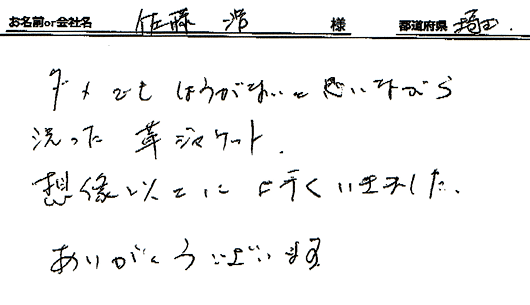 お名前or会社名 佐藤 浩 様 都道府県 埼玉
ダメでもしょうがないと思いながら
洗った革ジャケット.
想像以上に上手くいきました.
ありがとうございます